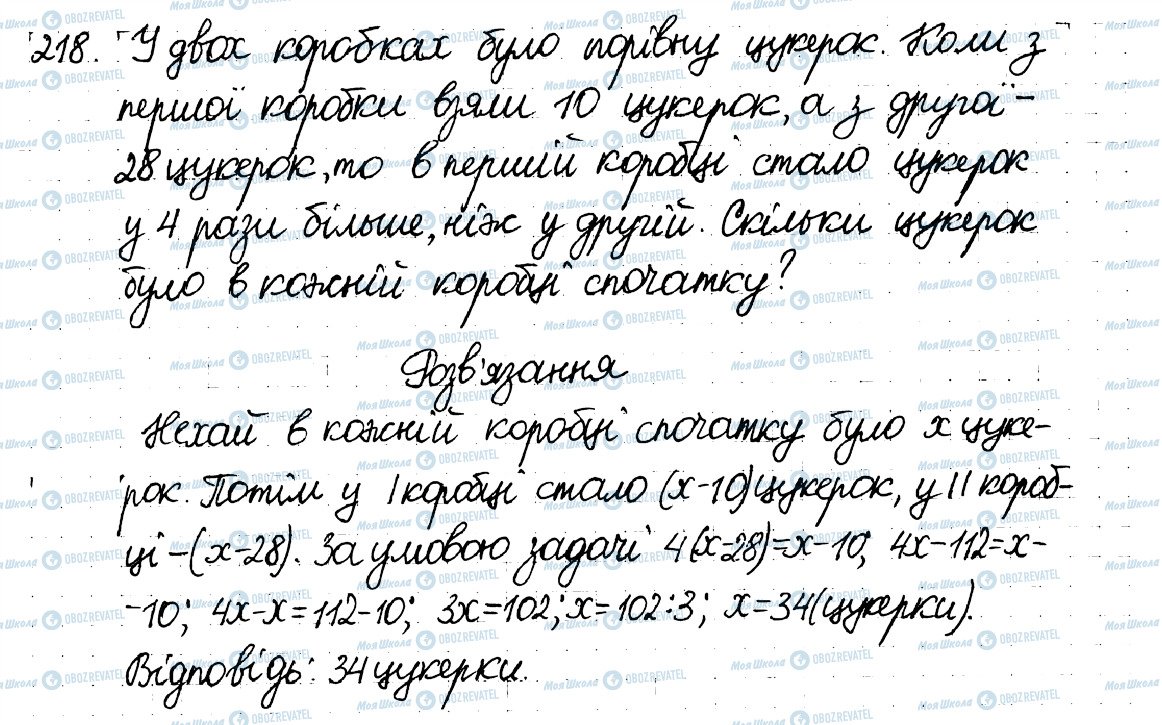 218. У двох коробках було порівну цукерок. Коли з
першої коробки взяли 10 цукерок, а з другої -
28 цукерок, то в першій коробці стало цукерок
у 4 рази більше, ніж у другій. Скільки цукерок
було в кожній коробці спочатку?
Розв'язання
Нехай в кожній коробці спочатку було x цуке-
рок. Потім у I коробці стало (x-10) цукерок, у II короб-
ці - (x-28). За умовою задачі 4(x-28)=x-10; 4x-112=x-
-10; 4x-x=112-10; 3x=102; x=102:3; x=34 (цукерки).
Відповідь: 34 цукерки.